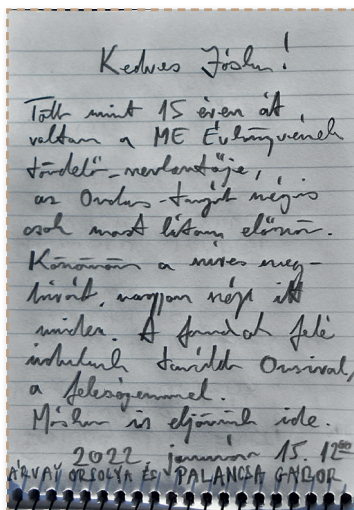 Kedves Jóska!
Több mint 15 éven át
voltam a ME Évkönyvének
tördelő-
az tárgyat mégis
csak most látom először.
Köszönöm a szíves meg-
hívást, nagyon szép itt
minden. A fandak felé
indulunk tovább Orsival,
a feleségemmel.
Máskor is eljövünk ide.
2022. január 15. 12⁰⁰
ÁRVAY ORSOLYA ÉS PALANCSA GÁBOR